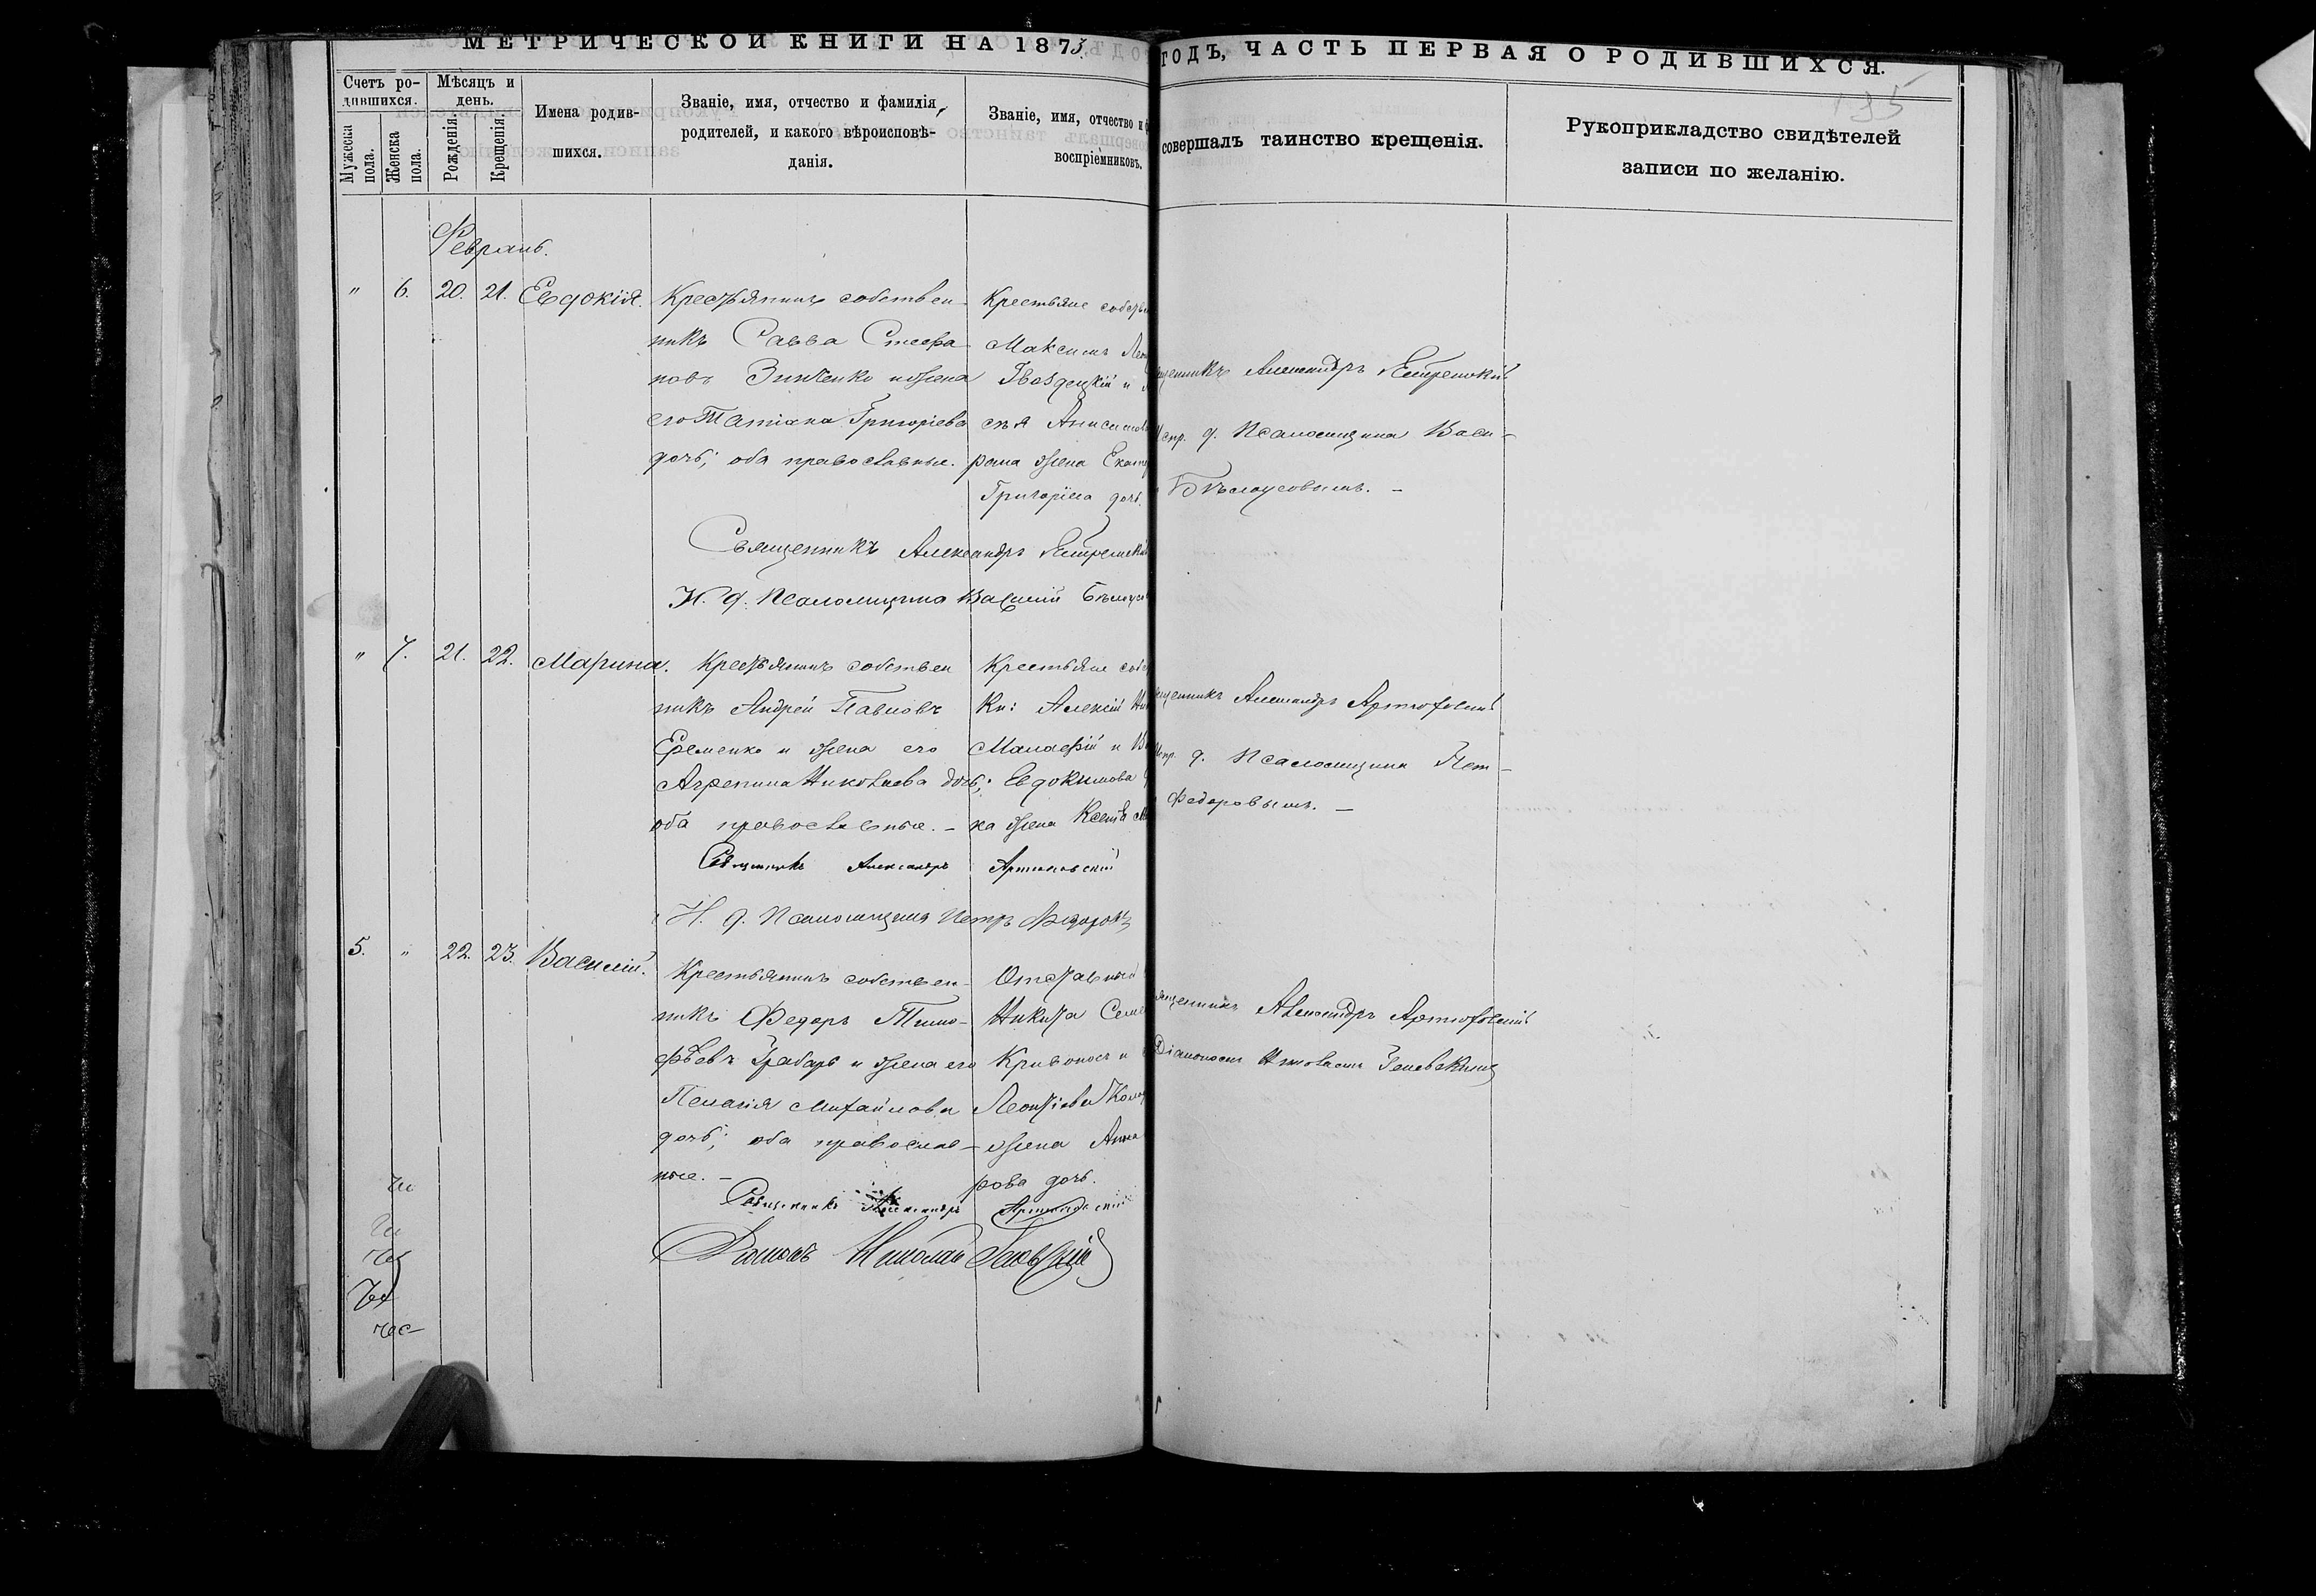 МЕТРИЧЕСКОЙ КНИГИ НА 1873
ГОДЪ, ЧАСТЬ ПЕРВАЯ О РОДИВШИХСЯ.
Счетъ ро-
дившихся.
Мѣсяцъ и
день.
Мужеска
пола.
Женска
пола.
Рожденія.
Крещенія.
Имена родив-
шихся.
Званіе, имя, отчество и фамилія
родителей, и какого вѣроисповѣ-
данія.
Званіе, имя, отчество и ф
воспріемниковъ.
совершалъ таинство крещенія.
Рукоприкладство свидѣтелей
записи по желанію.
Февраль.
" 6. 20. 21. Евдокія.
Крестьянинъ собствен-
никъ Савва Стефа-
новъ Зинченко и жена
его Татіана Григоріева
дочь; оба православные.
Крестьяне собств
Максимъ
Гвоздецкій и
Анисимов
жена Екатер
Григоріева дочь.
щенникъ Александръ
Испр. д. Псаломщика Васи-
Бѣлоусовымъ. -
Священникъ Александръ
И. д. Псаломщика Василій Бѣлоусов
" 7. 21. 22. Марина.
Крестьянинъ собствен
никъ Андрей Павловъ
Еременко и жена его
Агрепина Николаева дочь;
оба православные. -
Крестьяне собс
ки: Алексій
и
Евдокимова
ка жена Ксенія
щенникъ Александръ Артюховскій
Испр. д. Псаломщика Пет-
Федоровымъ. -
Священникъ Александръ Артюховскій
И. д. Псаломщика Петръ Федоровъ
5. " 22. 23. Василій.
Крестьянинъ собствен-
никъ Федоръ Тимо-
фѣевъ Грабарь и жена его
Пелагія Михайлова
дочь; оба православ-
ные. -
Отставный
Никита Семе
Кривоносъ и
Леонтіева
жена Анна
рова дочь.
щенникъ Александръ Артюховскій
Діакономъ Николаемъ
Священникъ Александръ Артюховскій
Діаконъ Николай